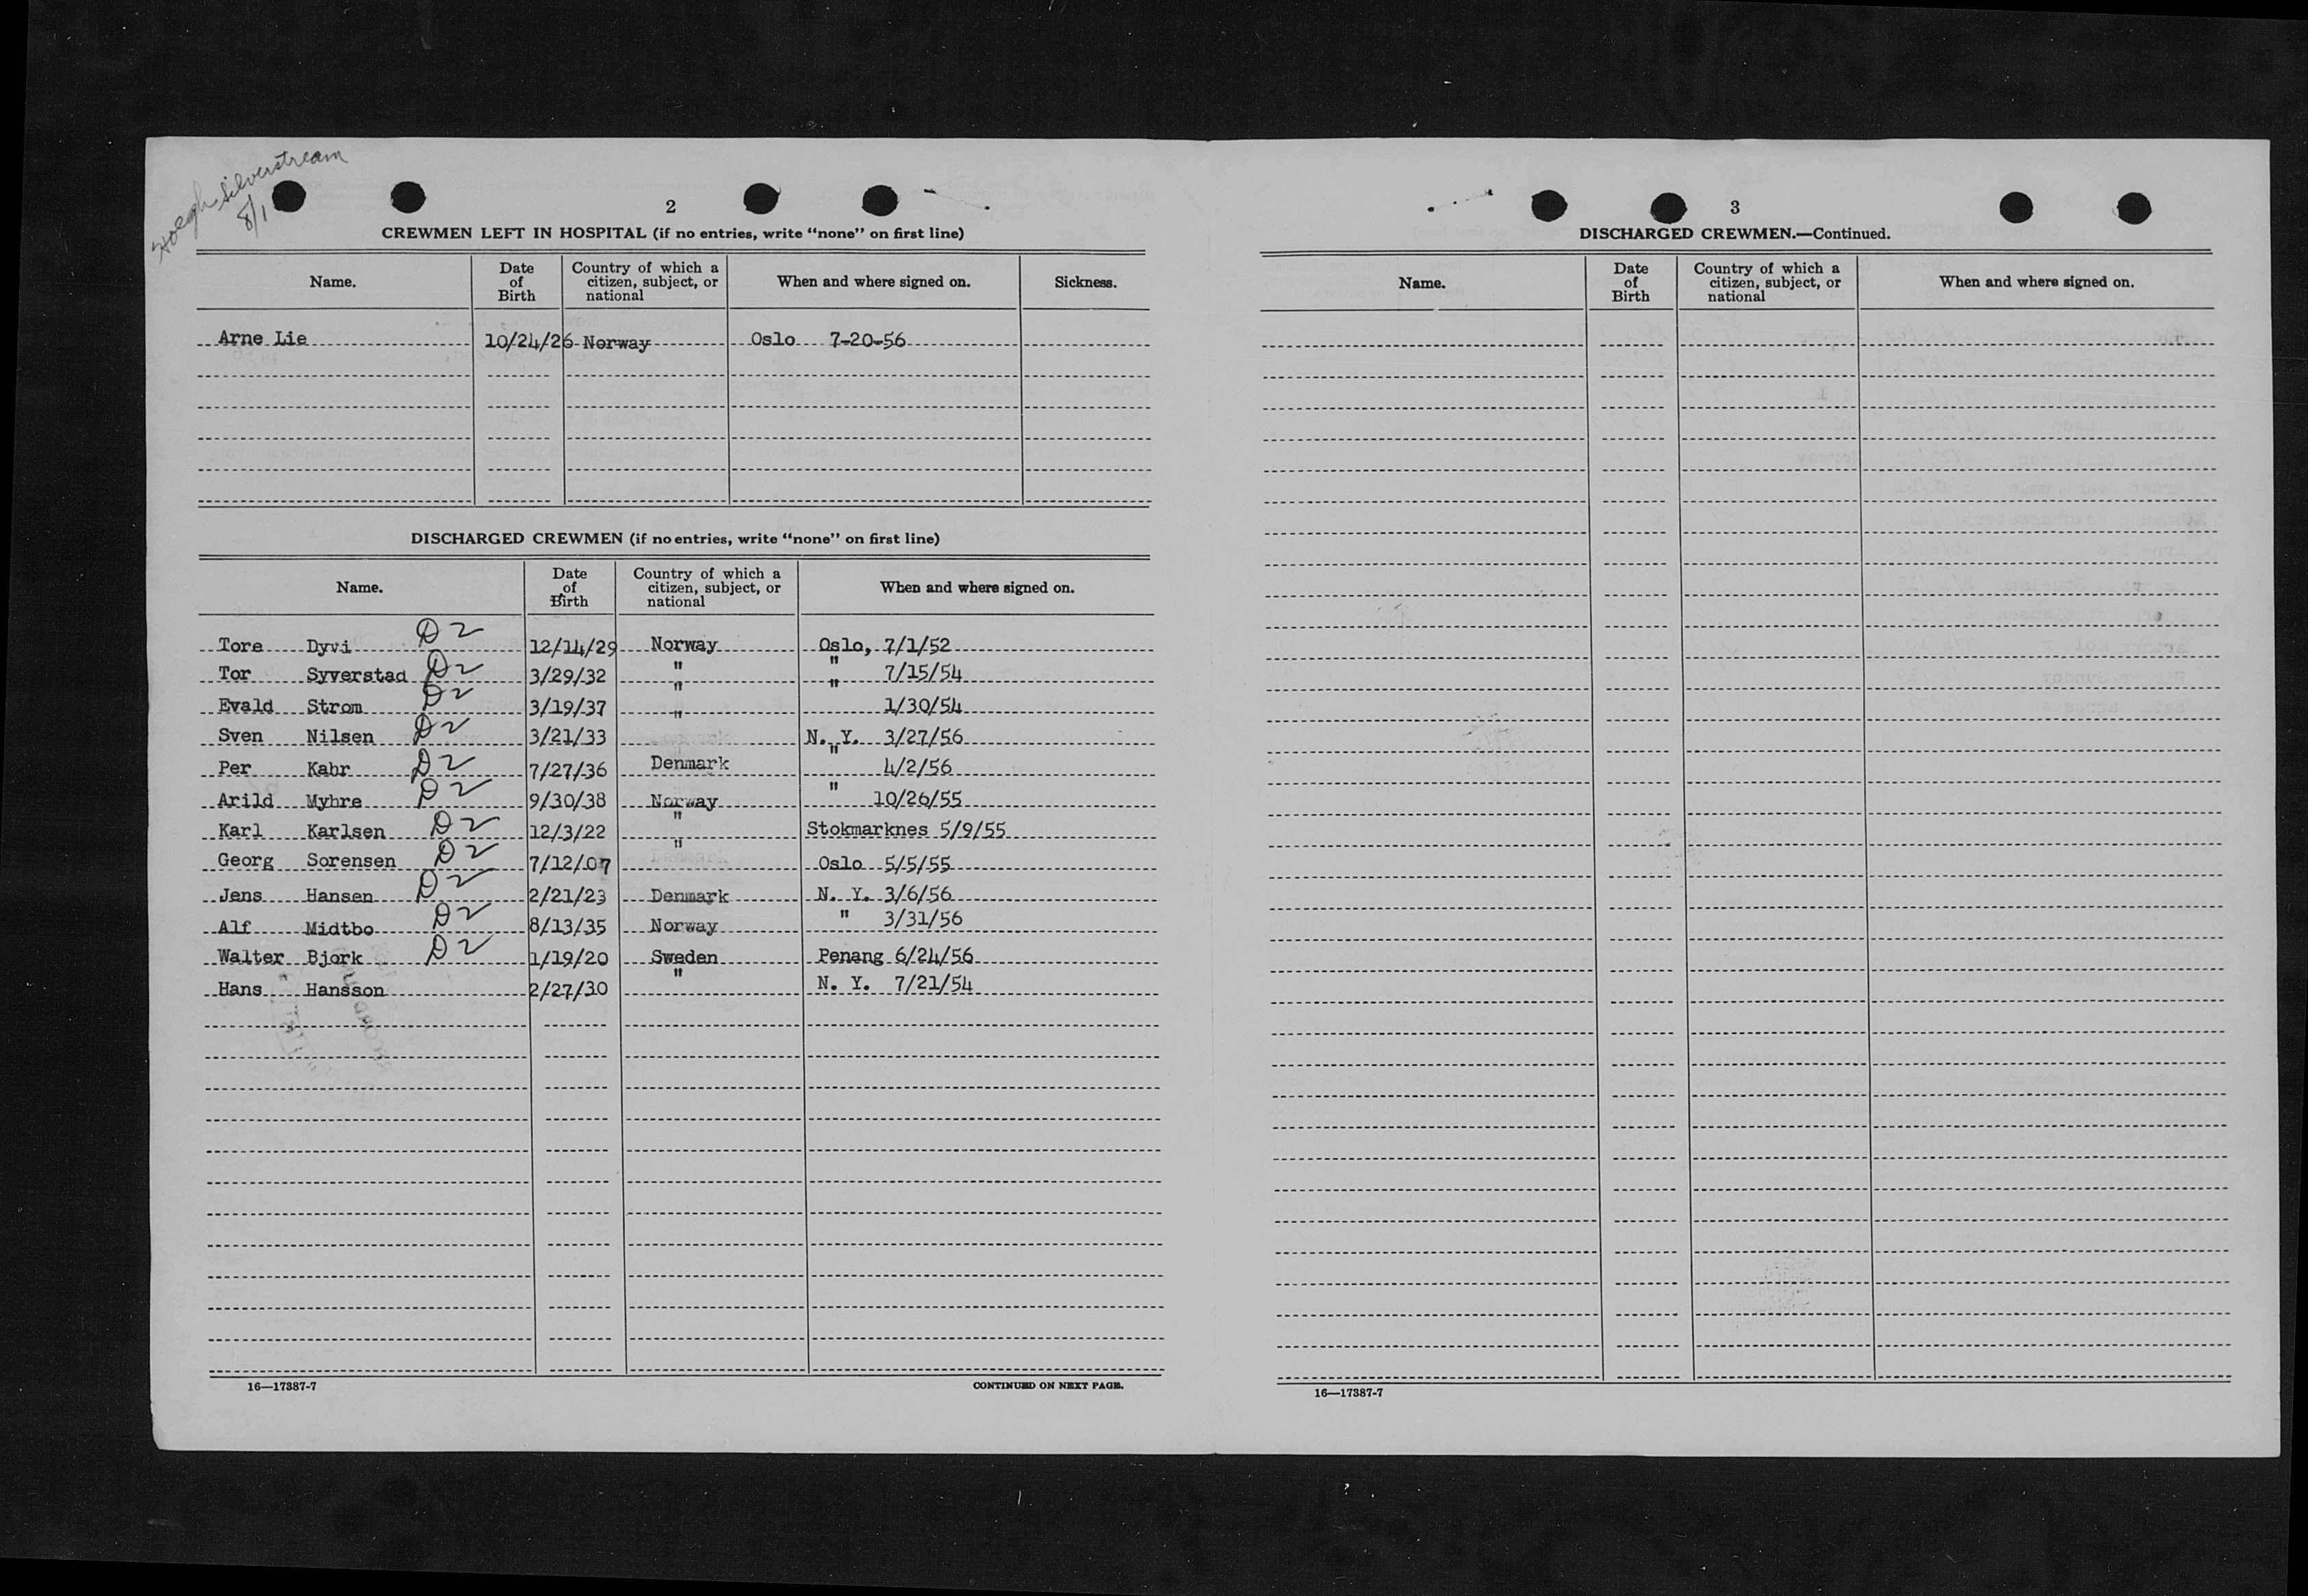 Hoegh Silverstream
8/1
2
CREWMEN LEFT IN HOSPITAL (if no entries, write “none” on first line)
Name. Date of Birth Country of which a citizen, subject, or national When and where signed on. Sickness.
Arne Lie 10/24/26 Norway Oslo 7-20-56
DISCHARGED CREWMEN (if no entries, write “none” on first line)
Name. Date of Birth Country of which a citizen, subject, or national When and where signed on.
Tore Dyvi D2 12/14/29 Norway Oslo, 7/1/52
Tor Syverstad D2 3/29/32 " " 7/15/54
Evald Strom D2 3/19/37 " " 1/30/54
Sven Nilsen D2 3/21/33 " N. Y. 3/27/56
Per Kahr D2 7/27/36 Denmark " 4/2/56
Arild Myhre D2 9/30/38 Norway " 10/26/55
Karl Karlsen D2 12/3/22 " Stokmarknes 5/9/55
Georg Sorensen D2 7/12/07 " Oslo 5/5/55
Jens Hansen D2 2/21/23 Denmark N. Y. 3/6/56
Alf Midtbo D2 8/13/35 Norway " 3/31/56
Walter Bjork D2 1/19/20 Sweden Penang 6/24/56
Hans Hansson 2/27/30 " N. Y. 7/21/54
16—17387-7 CONTINUED ON NEXT PAGE.
3
DISCHARGED CREWMEN.—Continued.
Name. Date of Birth Country of which a citizen, subject, or national When and where signed on.
16—17387-7